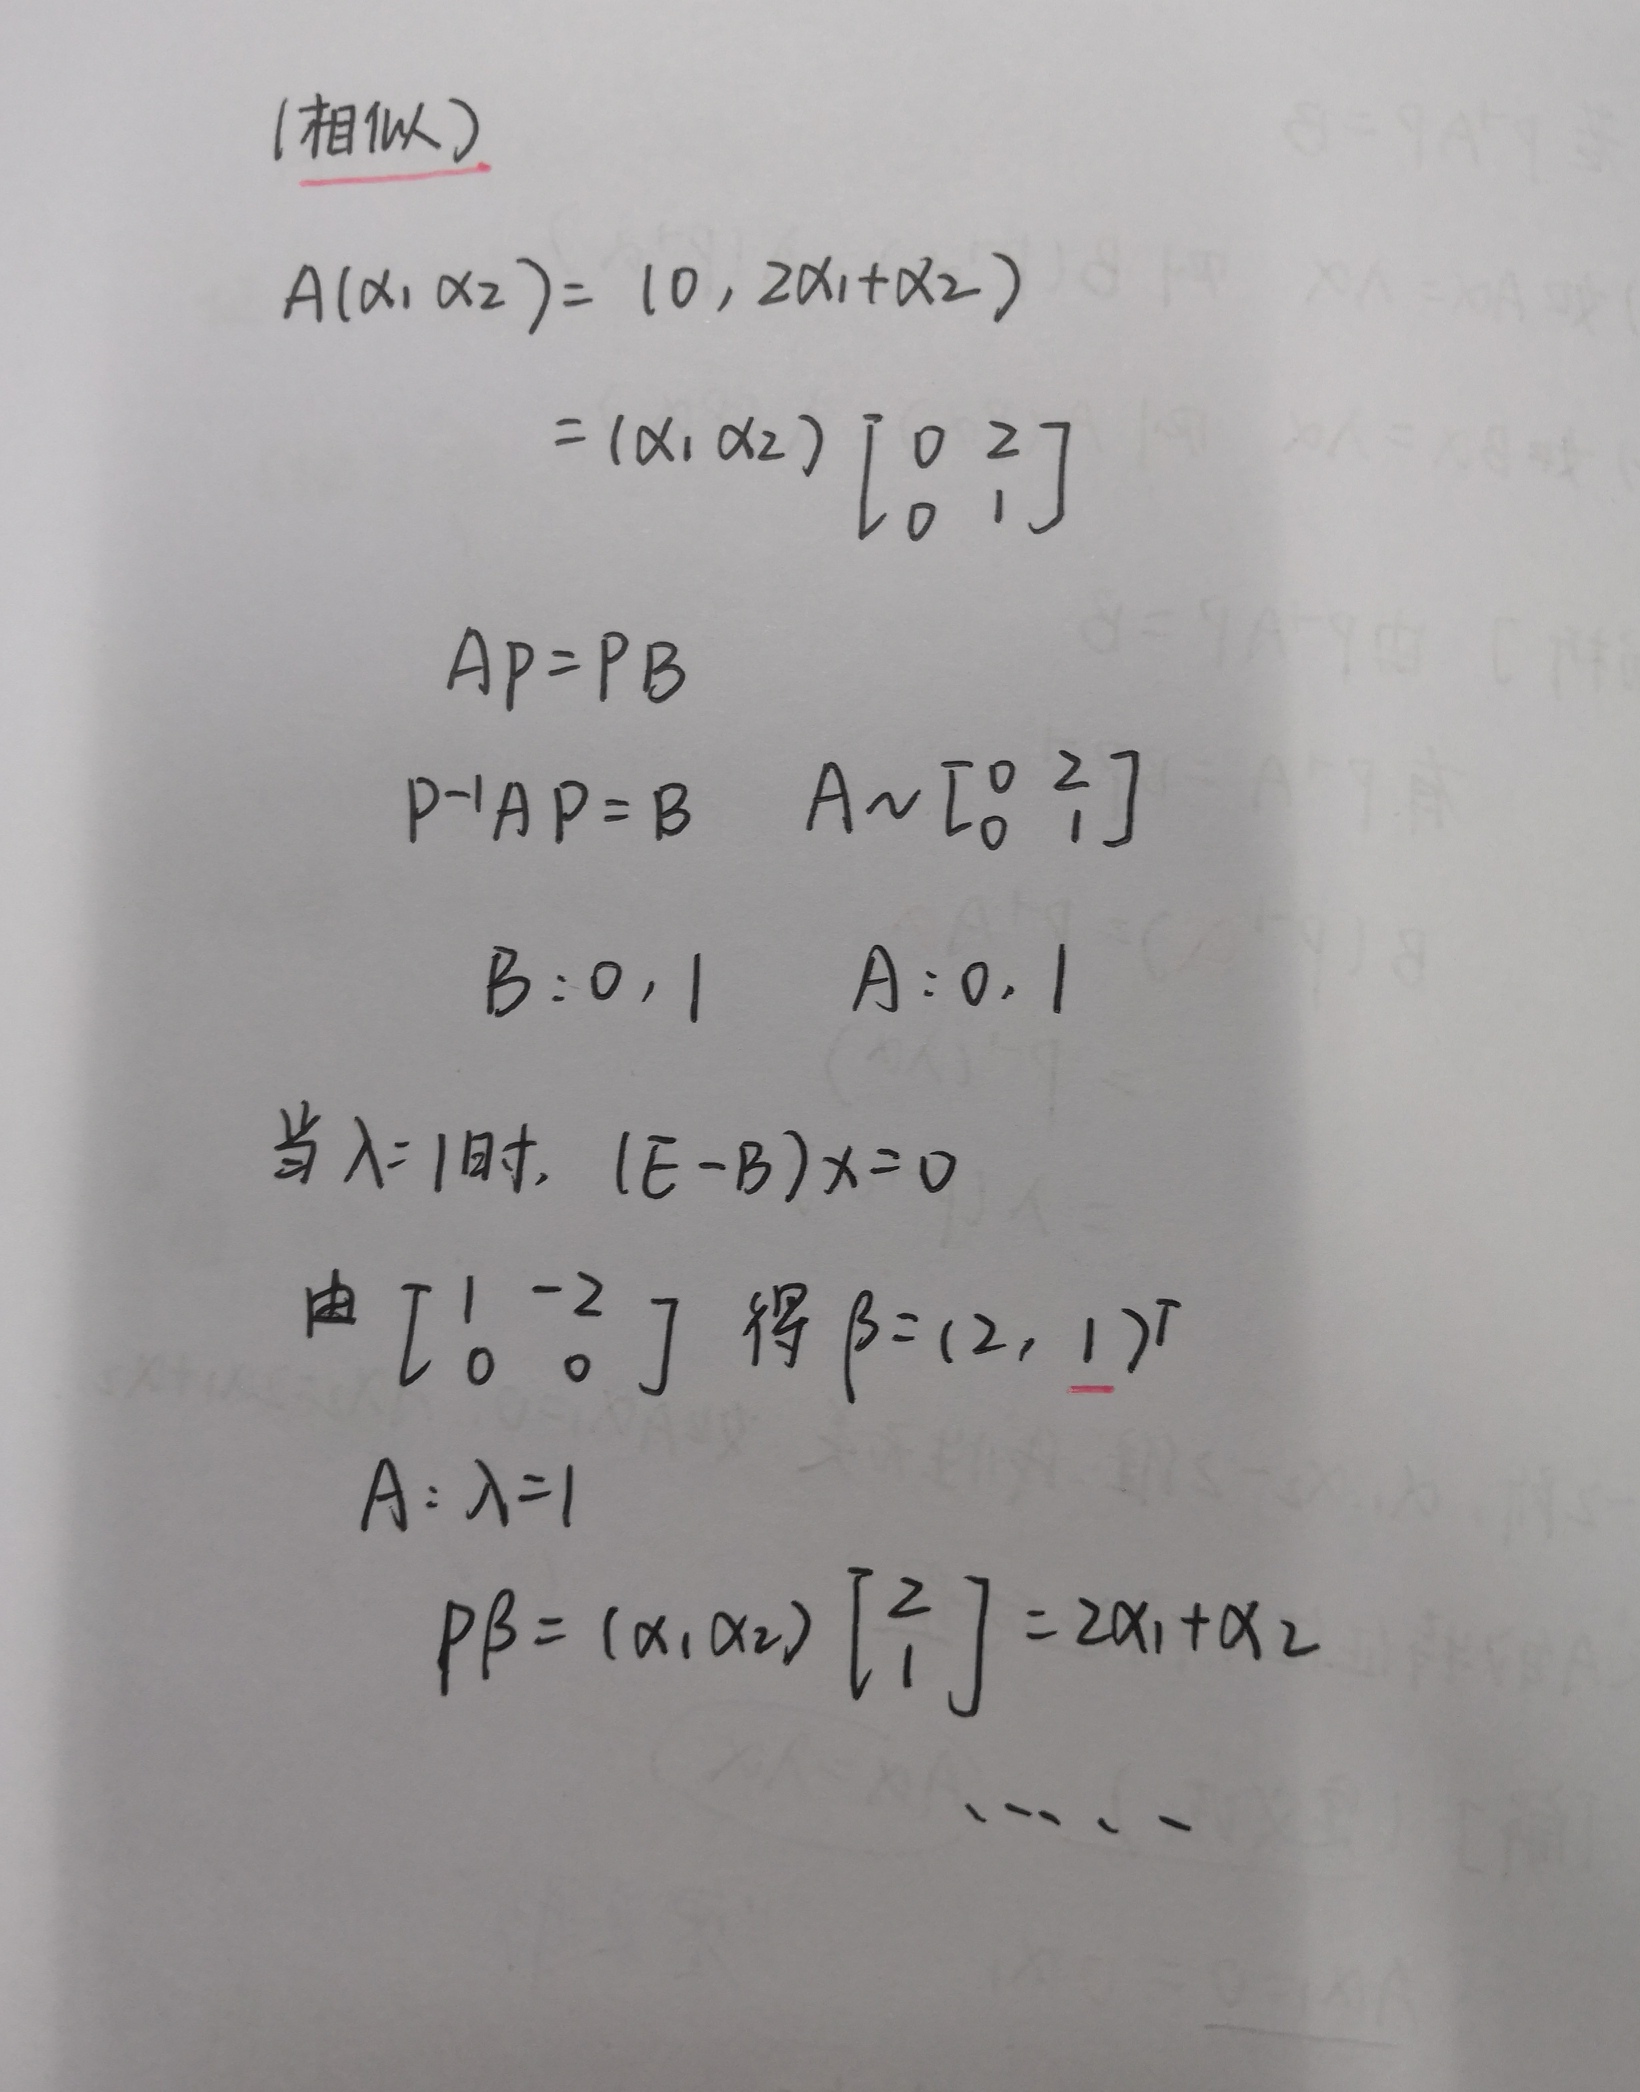 (相似)
A(α₁ α₂) = (0, 2α₁+α₂)
= (α₁ α₂) [0 2
0 1]
AP = PB
P⁻¹AP = B A ~ [0 2
0 1]
B: 0, 1 A: 0, 1
当 λ=1时, (E-B)x=0
由 [1 -2
0 0] 得 β=(2, 1)ᵀ
A: λ=1
Pβ = (α₁ α₂) [2
1] = 2α₁+α₂
......